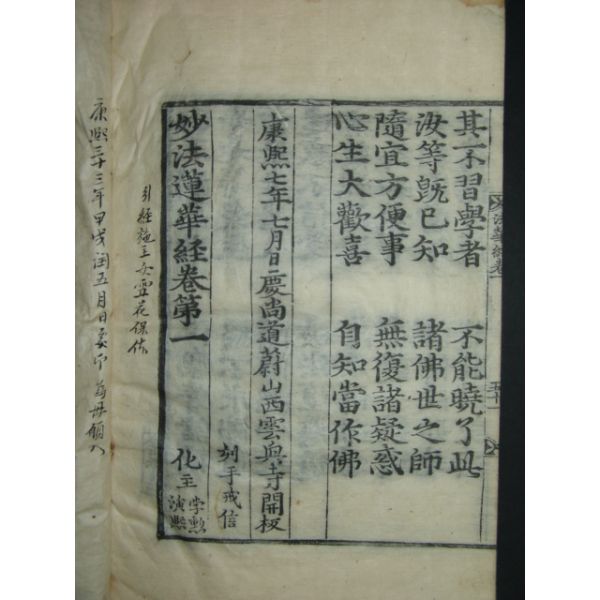 其不習學者 不能曉了此
汝等既已知 諸佛世之師
隨宜方便事 無復諸疑惑
心生大歡喜 自知當作佛
康熙七年七月日慶尚道蔚山西雲興寺開板
刻手戒信
妙法蓮華経卷第一
化主
演熙
引経施主
康熙三十三年甲戌閏五月日